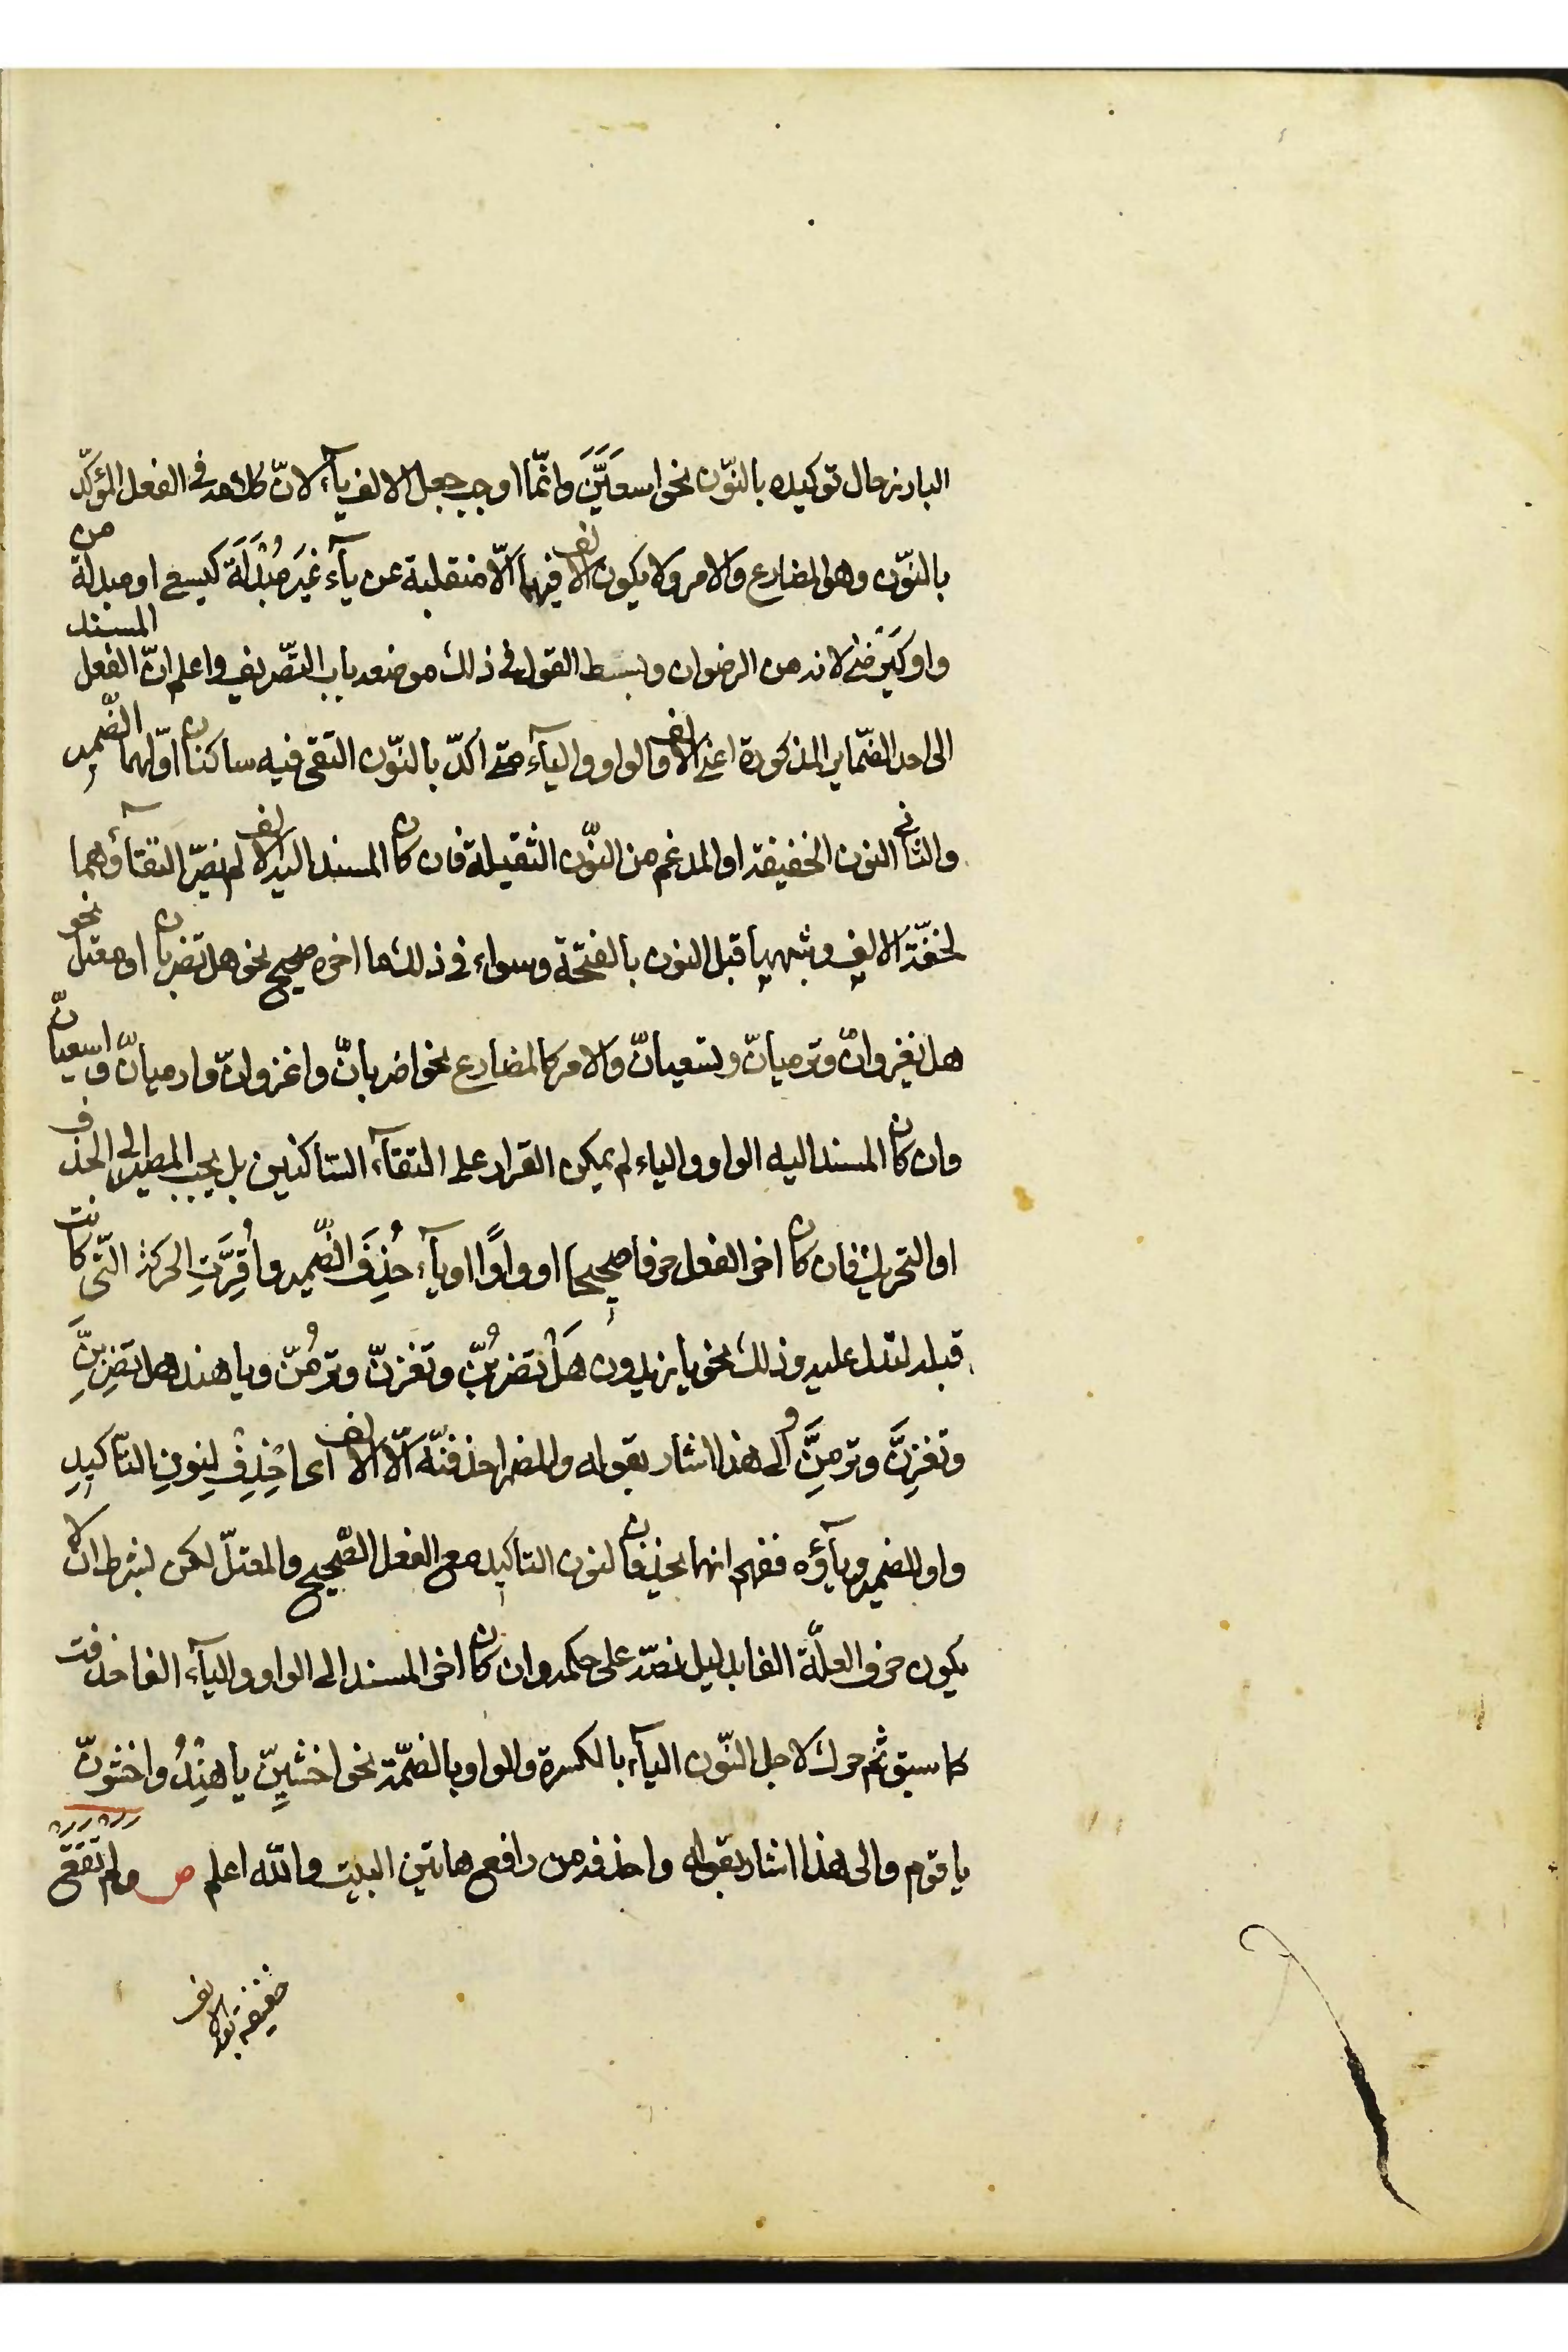 البارز حال توكيده بالنّون نحو اسعَيَنَّ وانّما اوجب جعل الالف يآء لانّ كلامه في الفعل المؤكّد
بالنّون وهو المضارع والامر ولا يكون الالف فيهما الّا منقلبة عن يآء غَيرَ مُبْدَلَة كيسعى او مبدلة من
واو كيَرضى لانه من الرضوان وبسط القول في ذلك موضعه باب التّصريف واعلم انّ الفعل المسند
الى احد الضّماير المذكورة اعني الالف والواو واليآء متى اكدّ بالنّون التقى فيه ساكنان اوّلهما الضّمير
والثاني النون الخفيفة او المدغم من النّون الثقيلة فان كان المسند اليه الالف لم يضرّ التقآؤهما
لخفّة الالف وشبهها قبل النون بالفتحة وسواء في ذلك ما اخره صحيح نحو هل تضربان او معتل نحو
هل تغزوانّ وترميانّ وتسعيانّ والامر كالمضارع نحو اضربانّ واغزوانّ وارميانّ واسعيانّ
وان كان المسند اليه الواو والياء لم يمكن القرار على التقآء السّاكنين بل يجب المصير الى الحذف
او التحريك فان كان اخر الفعل حرفا صحيحا او واوًا او يآء حُذِفَ الضّمير وأُقِرَّتِ الحركة التّي كانت
قبله لتدل عليه وذلك نحو يا زيدون هَلْ تضربُنّ وتغزنّ وترمُنّ ويا هند هل تضرِبِنَّ
وتغزِنَّ وترمِنَّ والى هذا اشار بقوله والمضمر احذفنّه الّا الالف اى احْذِفْ لِنونِ التأكيدِ
واو الضمير ويآؤه ففهم انهما يحذفان لنون التأكيد مع الفعل الصّحيح والمعتلّ لكن بشرط ان لا
يكون حرف العلّة الفا بدليل نصّه على حكمه وان كان اخر المسند الى الواو واليآء الفا حذفت
كما سبق ثم حرك لاجل النّون اليآء بالكسرة والواو بالضمّة نحو اخشَيِنّ يا هِنْدُ واخشَونّ
يا قوم والى هذا اشار بقوله واحذفه من رافع هاتين البيت والله اعلم ص ولم تَقَعْ
خفيفة بعد الالف